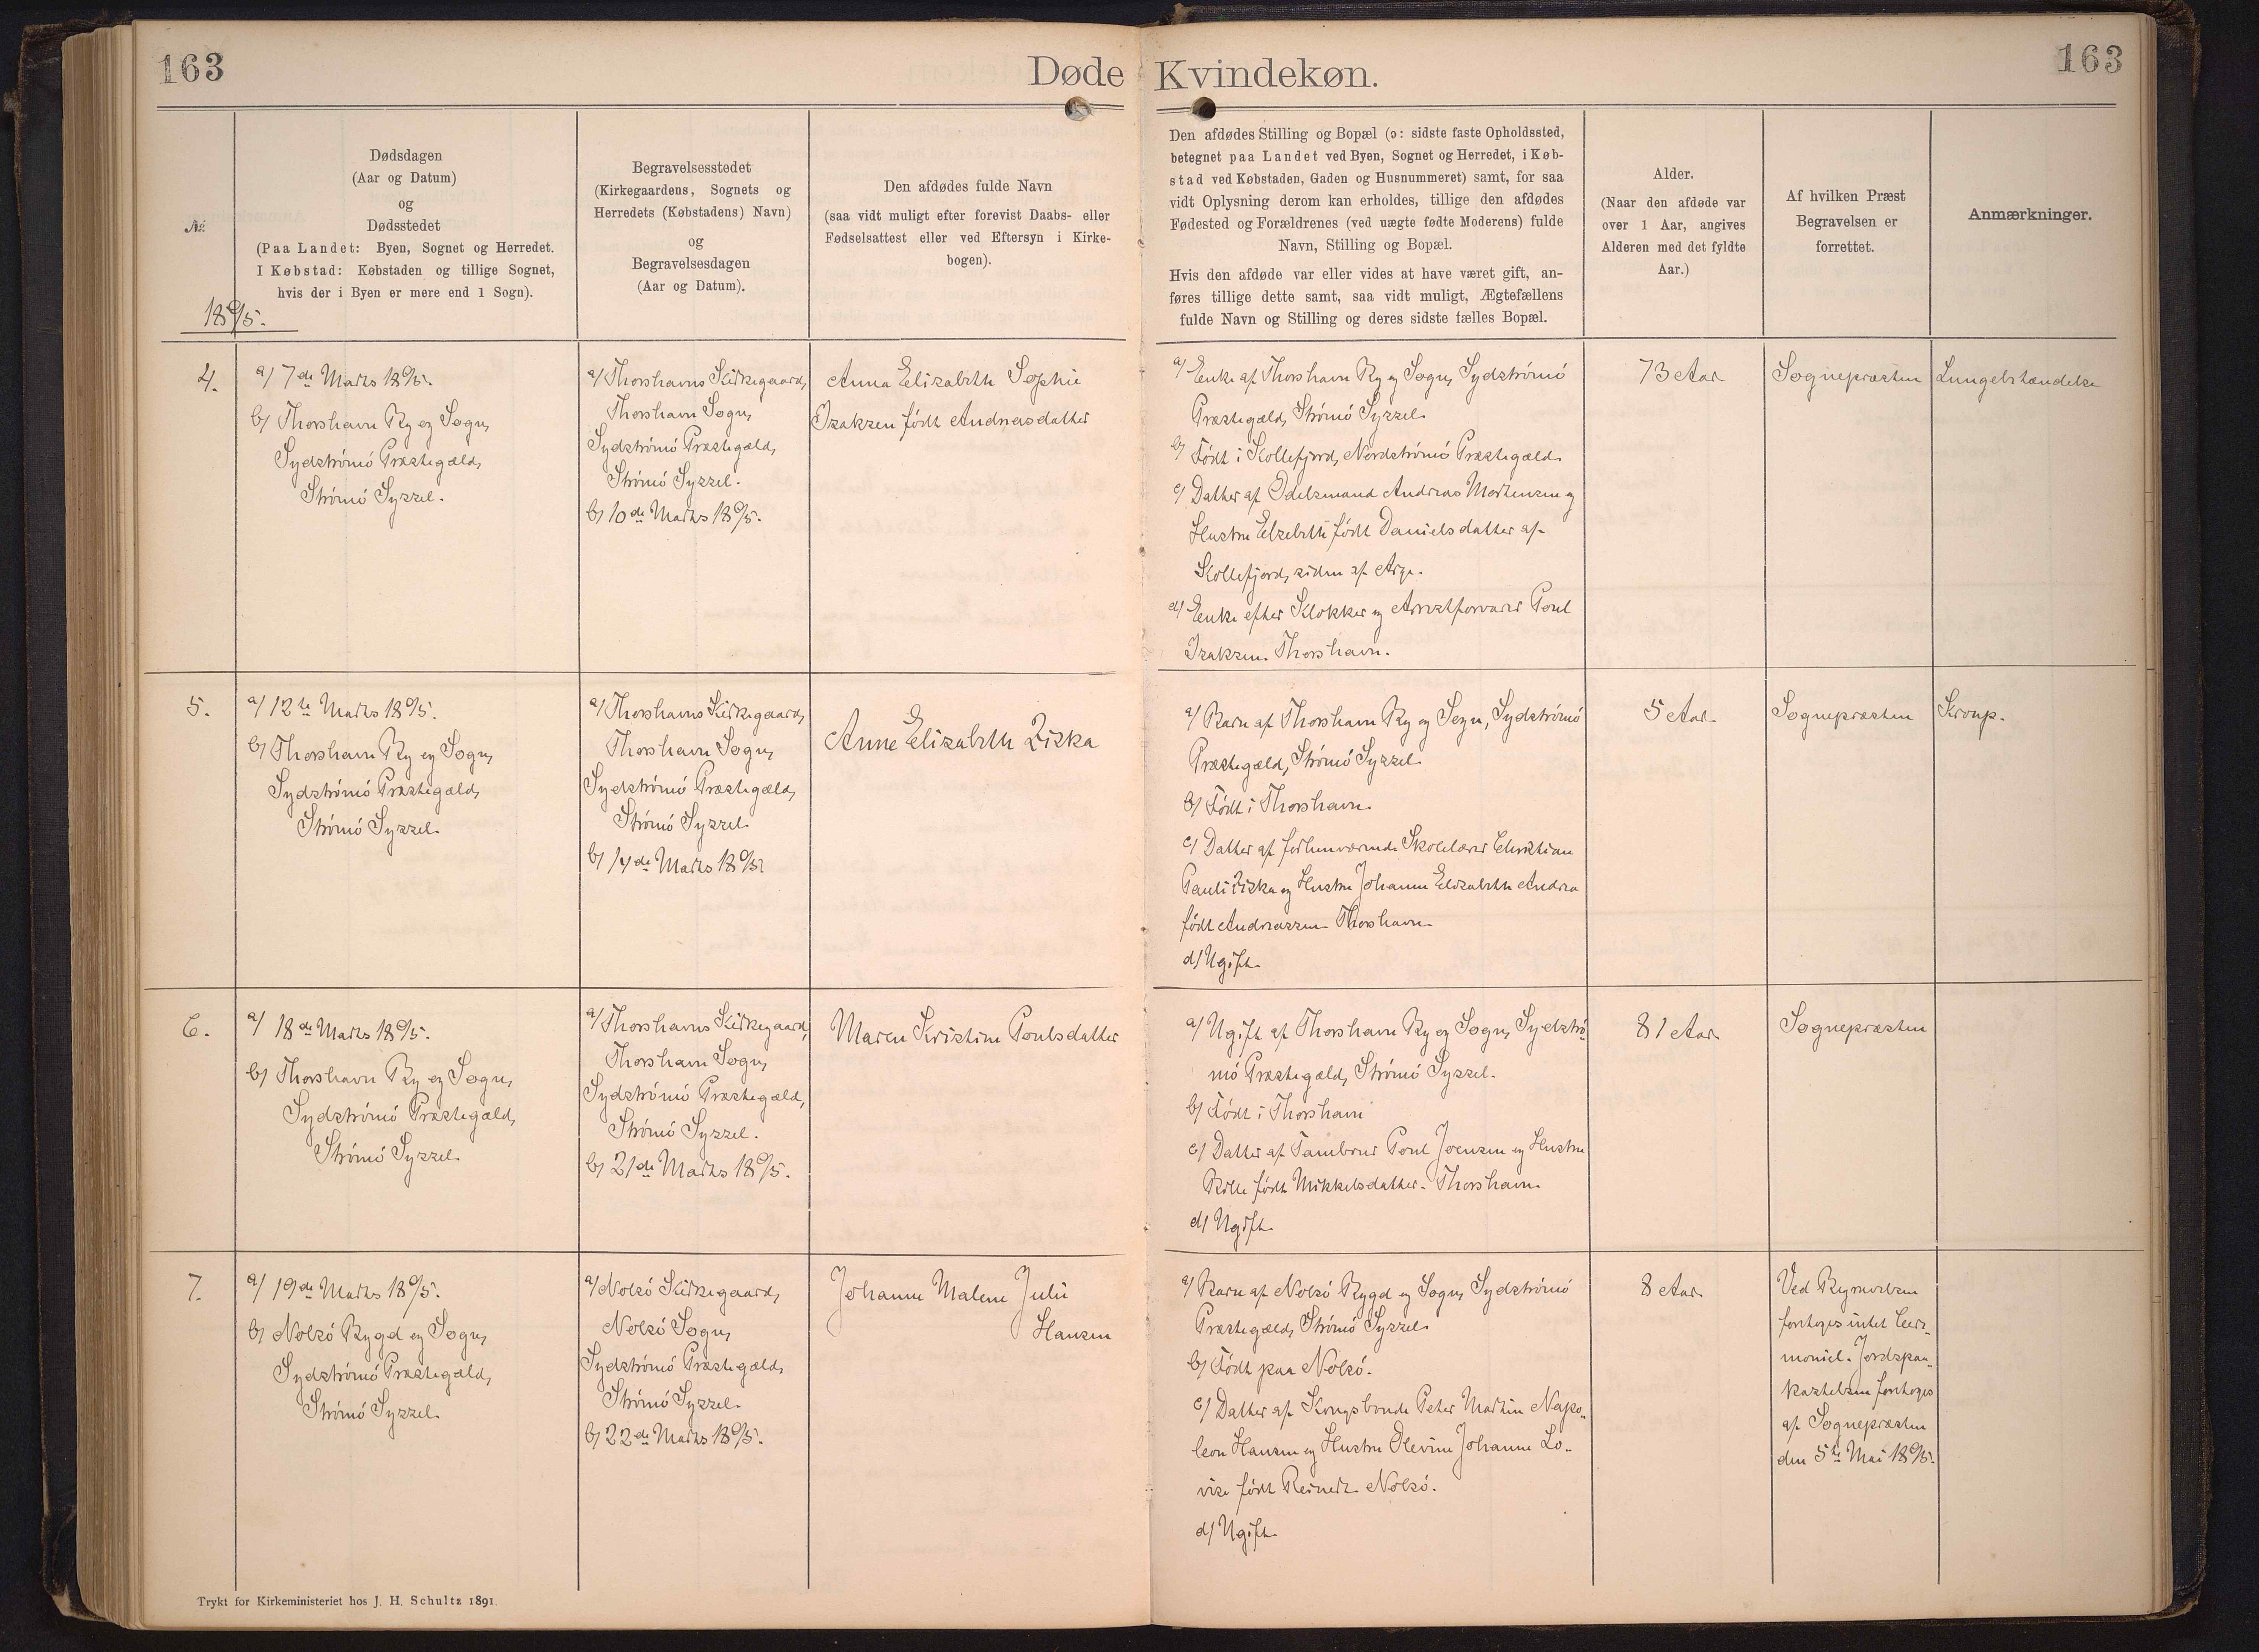 163
Døde Kvindekøn.
163
№
Dødsdagen
(Aar og Datum)
og
Dødsstedet
(Paa Landet: Byen, Sognet og Herredet.
I Købstad: Købstaden og tillige Sognet,
hvis der i Byen er mere end 1 Sogn).
Begravelsesstedet
(Kirkegaardens, Sognets og
Herredets (Købstadens) Navn)
og
Begravelsesdagen
(Aar og Datum).
Den afdødes fulde Navn
(saa vidt muligt efter forevist Daabs- eller
Fødselsattest eller ved Eftersyn i Kirke-
bogen).
Den afdødes Stilling og Bopæl (ɔ: sidste faste Opholdssted,
betegnet paa Landet ved Byen, Sognet og Herredet, i Køb-
stad ved Købstaden, Gaden og Husnummeret) samt, for saa
vidt Oplysning derom kan erholdes, tillige den afdødes
Fødested og Forældrenes (ved uægte fødte Moderens) fulde
Navn, Stilling og Bopæl.
Hvis den afdøde var eller vides at have været gift, an-
føres tillige dette samt, saa vidt muligt, Ægtefællens
fulde Navn og Stilling og deres sidste fælles Bopæl.
Alder.
(Naar den afdøde var
over 1 Aar, angives
Alderen med det fyldte
Aar.)
Af hvilken Præst
Begravelsen er
forrettet.
Anmærkninger.
1895.
4.
a) 7de Marts 1895.
b) Thorshavn By og Sogn,
Sydstrømø Præstegæld,
Strømø Syssel.
a) Thorshavns Kirkegaard,
Thorshavn Sogn,
Sydstrømø Præstegæld,
Strømø Syssel.
b) 10de Marts 1895.
Anna Elisabeth Sophie
Isaksen født Andreasdatter
a) Enke af Thorshavn By og Sogn, Sydstrømø
Præstegæld, Strømø Syssel.
b) Født i Kollefjord, Nordstrømø Præstegæld.
c) Datter af Odelsmand Andreas Mortensen og
Hustru Elsebeth født Danielsdatter af
Kollefjord, siden af Arge.
d) Enke efter Klokker og Arrestforvarer Poul
Isaksen. Thorshavn.
73 Aar
Sognepræsten
Lungebetændelse
5.
a) 12te Marts 1895.
b) Thorshavn By og Sogn,
Sydstrømø Præstegæld,
Strømø Syssel.
a) Thorshavns Kirkegaard,
Thorshavn Sogn,
Sydstrømø Præstegæld,
Strømø Syssel.
b) 14de Marts 1895.
Anne Elisabeth Ziska
a) Barn af Thorshavn By og Sogn, Sydstrømø
Præstegæld, Strømø Syssel.
b) Født i Thorshavn.
c) Datter af forhenværende Skolelærer Christian
Pauli Ziska og Hustru Johanne Elisabeth Andrea
født Andreassen. Thorshavn.
d) Ugift.
5 Aar.
Sognepræsten
Kroup.
6.
a) 18de Marts 1895.
b) Thorshavn By og Sogn,
Sydstrømø Præstegæld,
Strømø Syssel.
a) Thorshavns Kirkegaard,
Thorshavn Sogn,
Sydstrømø Præstegæld,
Strømø Syssel.
b) 21de Marts 1895.
Maren Kristine Poulsdatter
a) Ugift af Thorshavn By og Sogn, Sydstrø-
mø Præstegæld, Strømø Syssel.
b) Født i Thorshavn
c) Datter af Tambour Poul Joensen og Hustru
Bille født Mikkelsdatter. Thorshavn.
d) Ugift.
81 Aar.
Sognepræsten
7.
a) 19de Marts 1895.
b) Nolsø Bygd og Sogn,
Sydstrømø Præstegæld,
Strømø Syssel.
a) Nolsø Kirkegaard,
Nolsø Sogn,
Sydstrømø Præstegæld,
Strømø Syssel.
b) 22de Marts 1895.
Johanne Malene Julie
Hansen
a) Barn af Nolsø Bygd og Sogn, Sydstrømø
Præstegæld, Strømø Syssel.
b) Født paa Nolsø.
c) Datter af Kongsbonde Peter Martin Napo-
leon Hansen og Hustru Olevine Johanne Lo-
vise født Reinert. Nolsø.
d) Ugift.
8 Aar.
Ved Begravelsen
foretoges intet Cere-
moniel. Jordspaa-
kastelsen foretoges
af Sognepræsten
den 5te Mai 1895.
Trykt for Kirkeministeriet hos J. H. Schultz 1891.